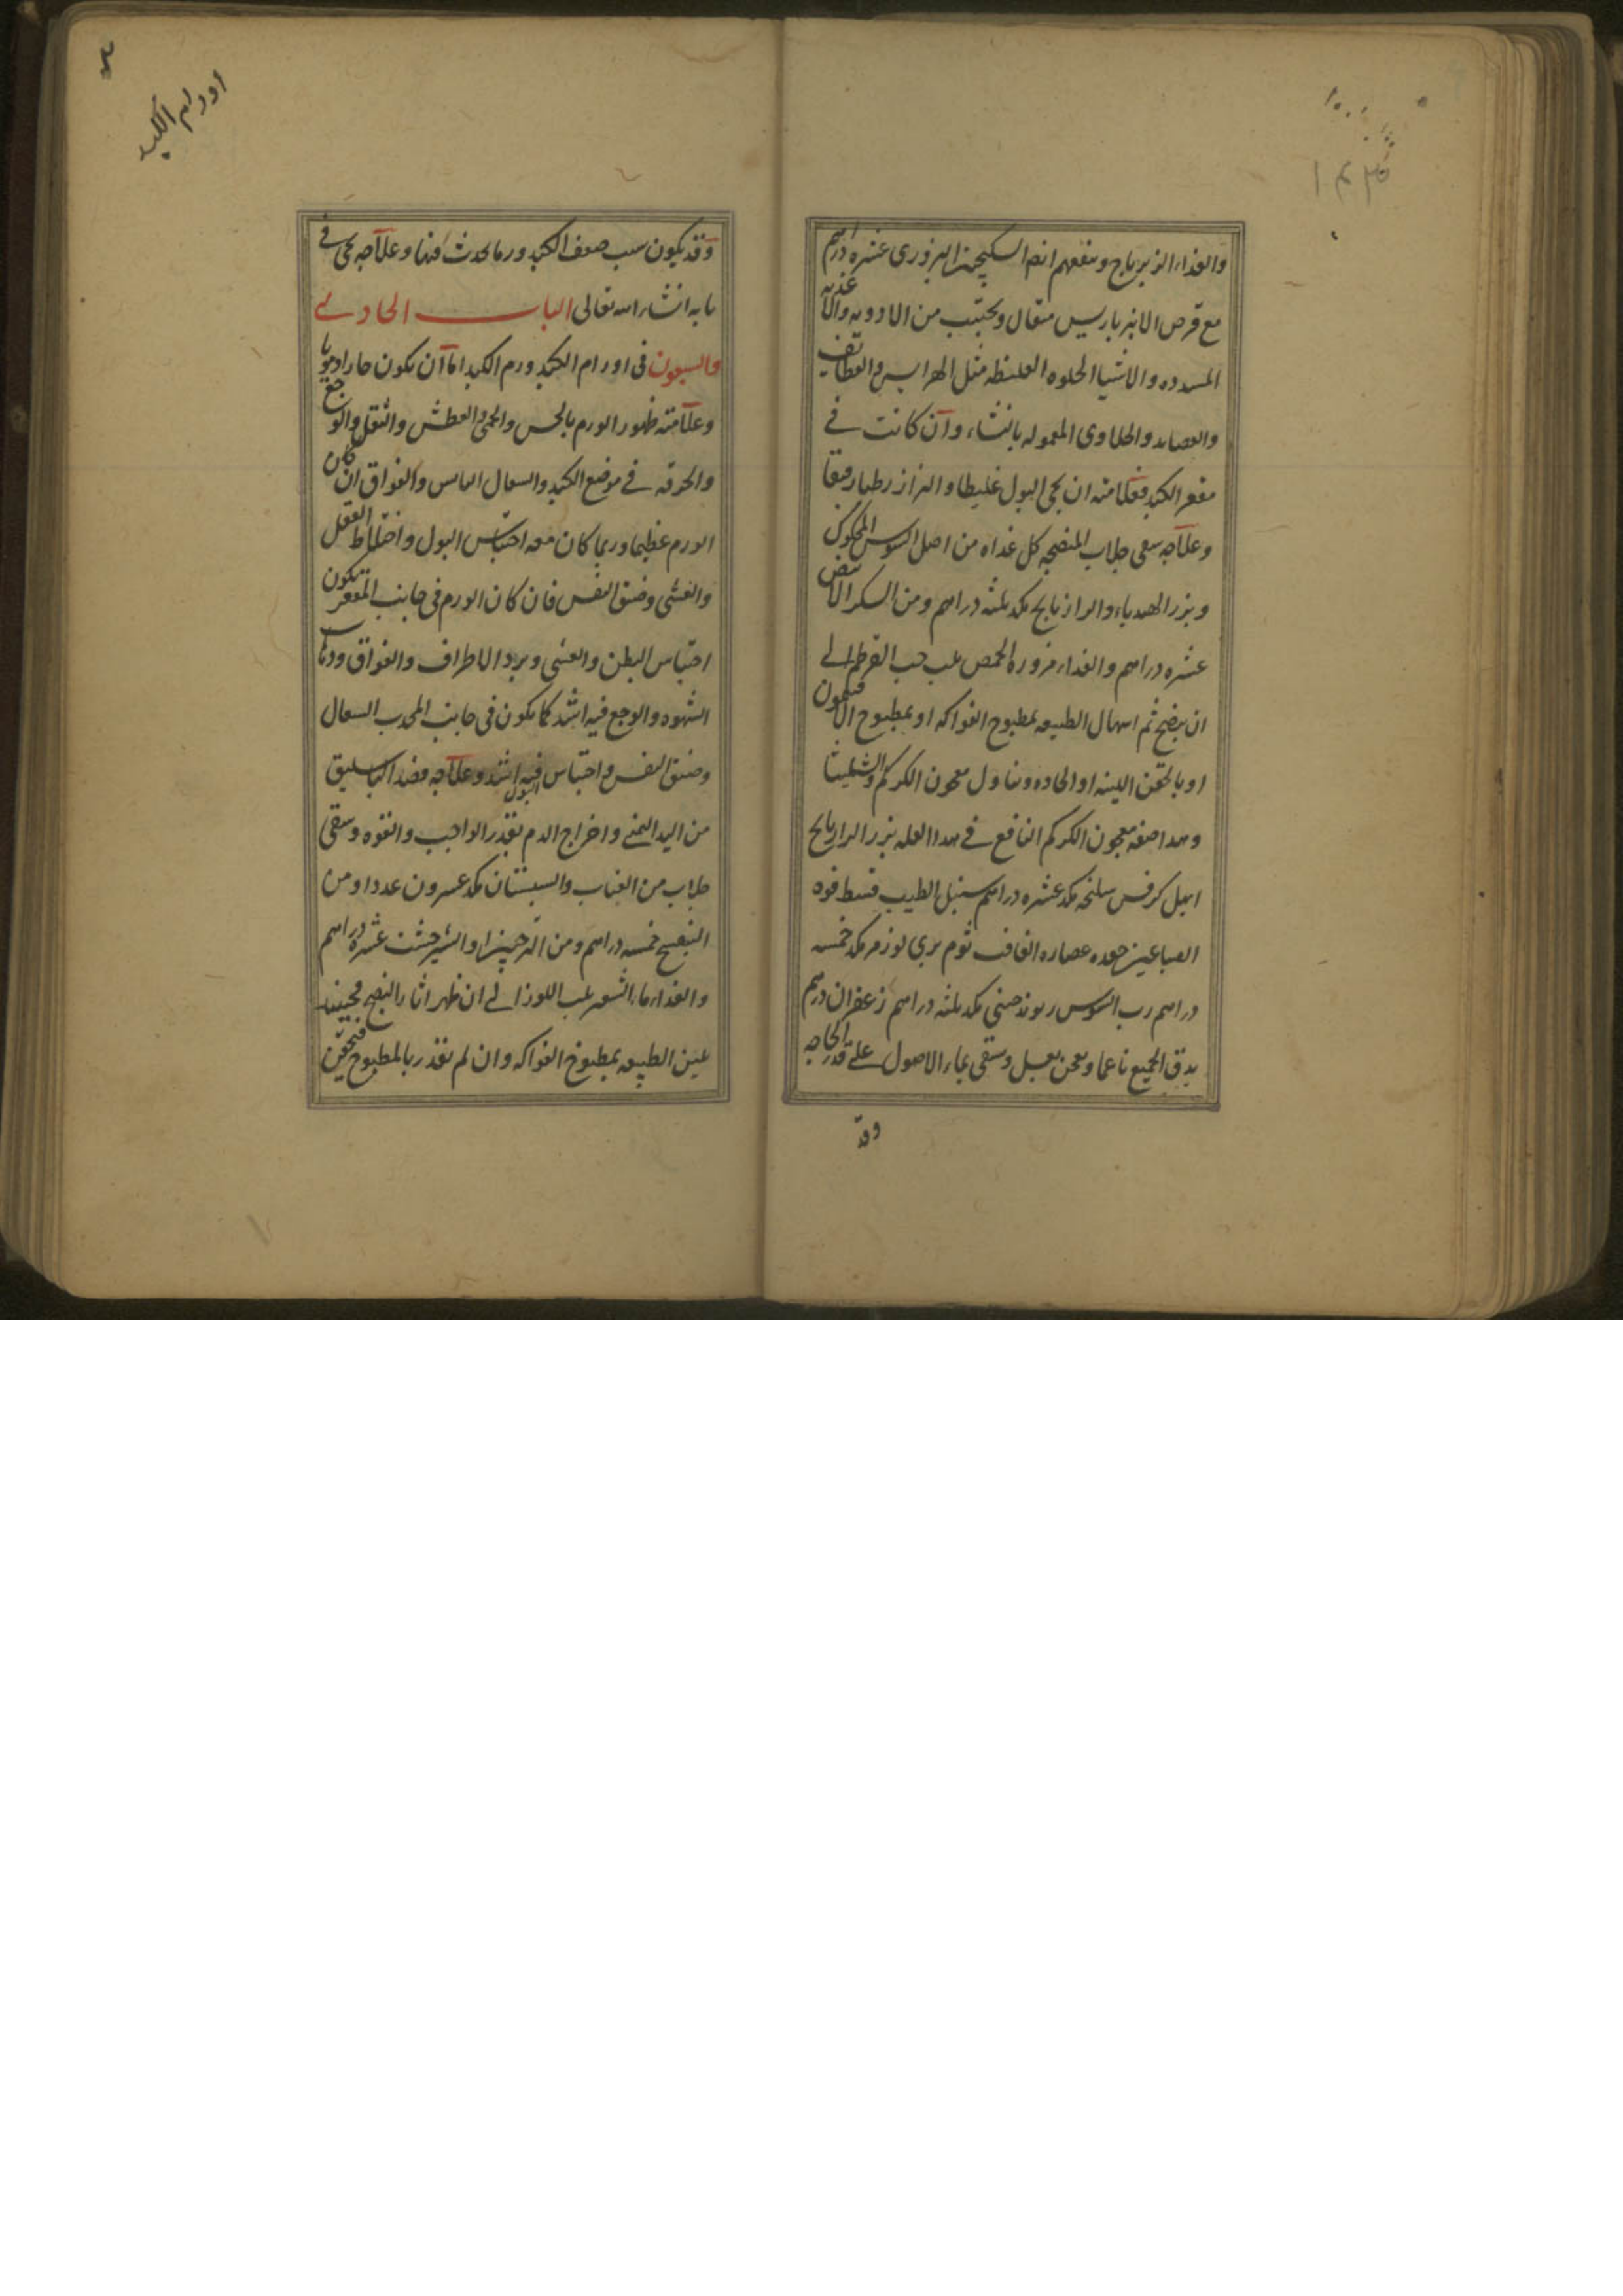 والغذاء الزيرباج وينفعهم ايضا السكنجبين البزورى عشره دراهم
مع قرص الانبرباريس مثقال ويجتنب من الادويه والاغذيه
المسدده والاشيا الحلوه الغليظه مثل الهرايس والقطايف
والعصايد والحلاوى المعموله بالنشاء وان كانت فى
مقعر الكبد فعلامته ان يجى البول غليظا والبراز رطبا رقيقا
وعلاجه سقى جلاب المنضجه كل غداه من اصل السوس المحكوك
وبزر الهندباء والرازيانج مكد ثلثه دراهم ومن السكر الابيض
عشره دراهم والغداء مزوره الحمص بلب حب القرطم الى
ان ينضج ثم اسهال الطبيعه بمطبوخ الفواكه او بمطبوخ الافتيمون
او بالحقن اللينه او الحاده وتناول معجون الكركم والشليثا
وهذا صفه معجون الكركم النافع فى هذا العله بزر الرازيانج
ابهل كرفس سليخه مكد عشره دراهم سنبل الطيب قسط فوه
الصباغين جعده عصاره الغافت ثوم برى لوز مر مكد خمسه
دراهم رب السوس ريوند صينى مكد ثلثه دراهم زعفران درهم
يدق الجميع ناعما ويعجن بعسل ويسقى بماء الاصول على قدر الحاجه
وقد
اورام الكبد
وقد يكون سبب ضعف الكبد ورما يحدث فيها وعلاجه يجى فى
بابه انشاء الله تعالى الباب الحادى
والسبعون فى اورام الكبد ورم الكبد اما ان يكون حارا دمويا
وعلامته ظهور الورم بالحس والحمى والعطش والثقل والوجع
والحرقه فى موضع الكبد والسعال اليابس والفواق ان كان
الورم عظيما وربما كان معه احتباس البول واختلاط العقل
والغشى وضيق النفس فان كان الورم فى جانب المقعر يكون
احتباس البطن والغشى وبرد الاطراف والفواق وذهاب
الشهوه والوجع فيه اشد كما يكون فى جانب المحدب السعال
وضيق النفس واحتباس البول فيه اشد وعلاجه فصد الباسليق
من اليد اليمنى واخراج الدم بقدر الواجب والقوه وسقى
جلاب من العناب والسبستان مكد عشرون عددا ومن
البنفسج خمسه دراهم ومن الترنجبين او الشيرخشت عشره دراهم
والغداء ماء الشعير بلب اللوز الى ان ظهر اثار النضج فحينئذ
تلين الطبيعه بمطبوخ الفواكه وان لم يقدر بالمطبوخ فيحقن